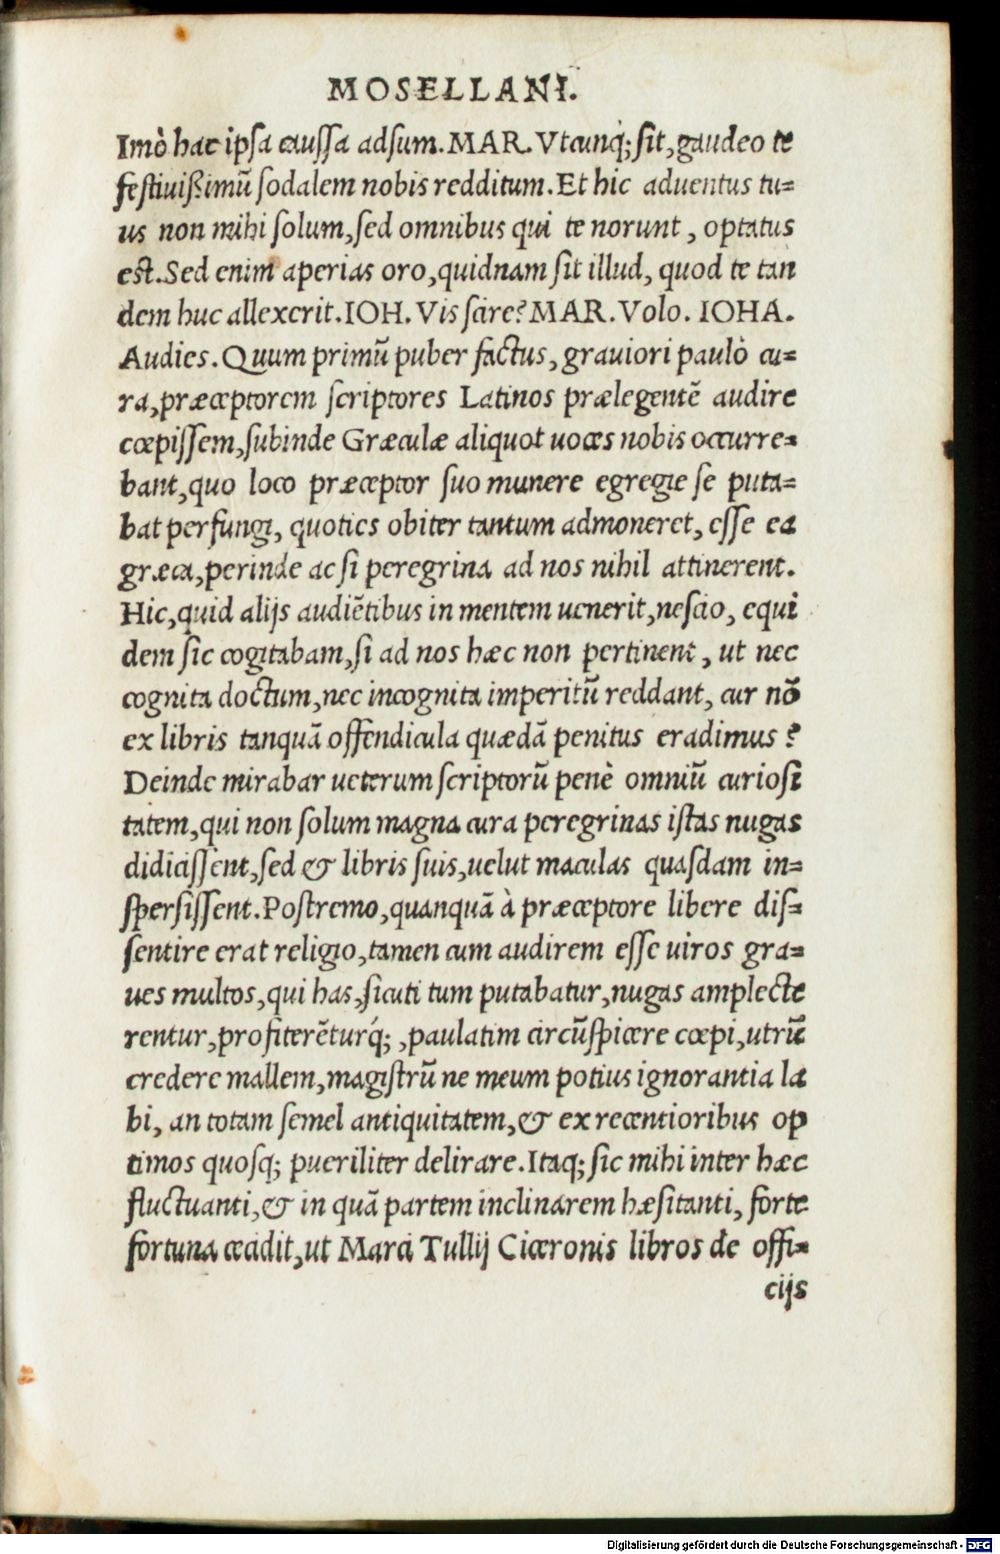 MOSELLANI.
Imò hac ipsa caussa adsum. MAR. Vtcunq; sit, gaudeo te
festiuißimũ sodalem nobis redditum. Et hic aduentus tu-
us non mihi solum, sed omnibus qui te norunt, optatus
est. Sed enim aperias oro, quidnam sit illud, quod te tan
dem huc allexerit. IOH. Vis scire? MAR. Volo. IOHA.
Audies. Quum primũ puber factus, grauiori paulò cu-
ra, præceptorem scriptores Latinos prælegentẽ audire
cœpissem, subinde Græculæ aliquot uoces nobis occurre-
bant, quo loco præceptor suo munere egregie se puta-
bat perfungi, quoties obiter tantum admoneret, esse ea
græca, perinde ac si peregrina ad nos nihil attinerent.
Hic, quid alijs audiẽtibus in mentem uenerit, nescio, equi
dem sic cogitabam, si ad nos hæc non pertinent, ut nec
cognita doctum, nec incognita imperitũ reddant, cur nõ
ex libris tanquã offendicula quædã penitus eradimus?
Deinde mirabar ueterum scriptorũ penè omniũ curiosi
tatem, qui non solum magna cura peregrinas istas nugas
didicissent, sed & libris suis, uelut maculas quasdam in-
spersissent. Postremo, quanquã à præceptore libere dis-
sentire erat religio, tamen cum audirem esse uiros gra-
ues multos, qui has, sicuti tum putabatur, nugas amplecte
rentur, profiterẽturq́;, paulatim circũspicere cœpi, utrũ
credere mallem, magistrũ ne meum potius ignorantia la
bi, an totam semel antiquitatem, & ex recentioribus op
timos quosq; pueriliter delirare. Itaq; sic mihi inter hæc
fluctuanti, & in quã partem inclinarem hæsitanti, forte
fortuna cecidit, ut Marci Tullij Ciceronis libros de offi-
cijs
Digitalisierung gefördert durch die Deutsche Forschungsgemeinschaft - DFG